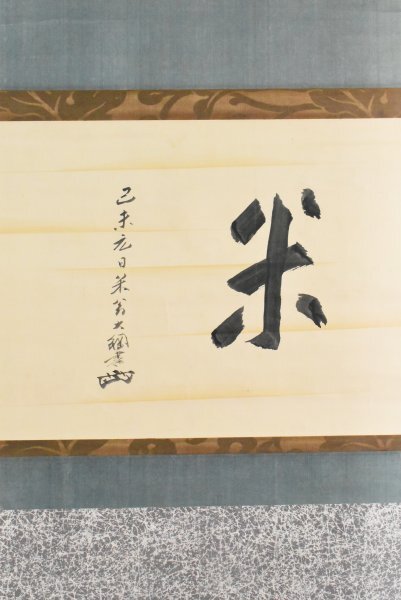 米
己未元日米翁大綱書